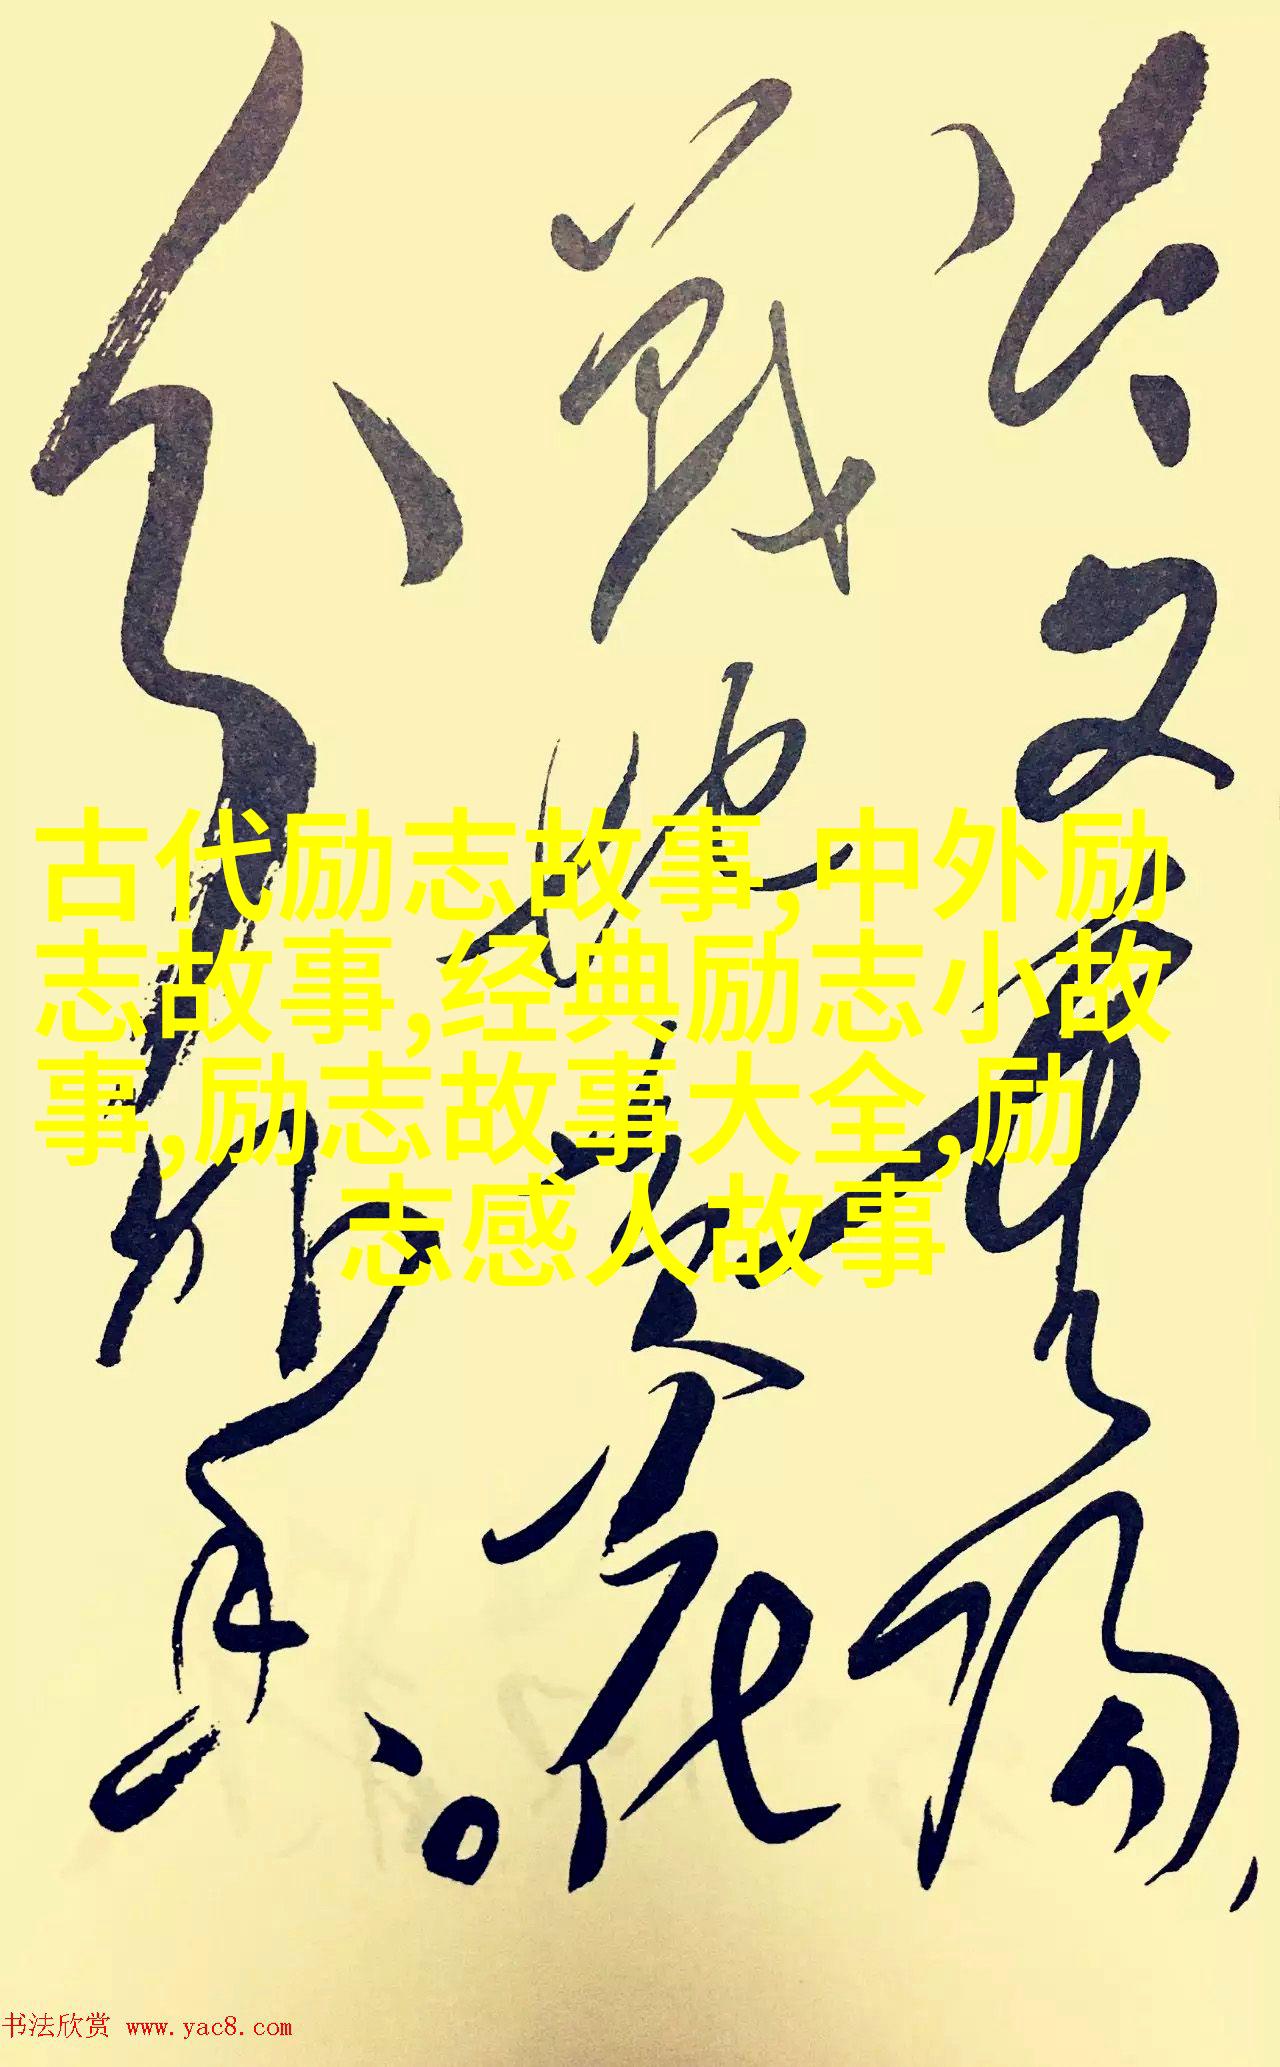 今又重陽,
戰地黄花
分外香。
古代励志故事,中外励
志故事,经典励志小故
事,励志故事大全,励
志感人故事
书法欣赏 www.yac8.com